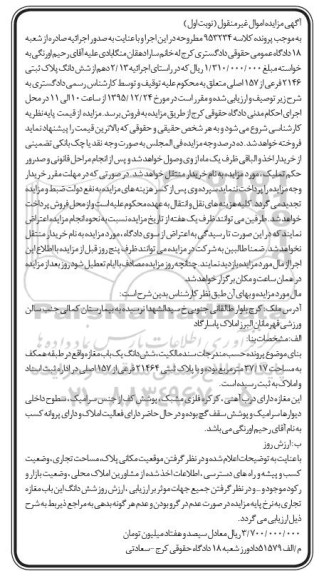 آگهی مزایده اموال غیر منقول (نوبت اول)
به موجب پرونده کلاسه ۹۵۳۲۳۴ مطروحه در این اجرا و با عنایت به صدور اجرائیه صادره از شعبه
۱۸ دادگاه عمومی حقوقی دادگستری کرج له خانم سارا دهقان منگابادی علیه آقای رحیم اورنگی به
خواسته مبلغ ۱/۳۱۰/۰۰۰/۰۰۰ ریال که در راستای اجرائیه ۲/۱۳ دهم از شش دانگ پلاک ثبتی
۲۱۴۶ فرعی از ۱۵۷ اصلی متعلق به محکوم علیه توقیف و توسط کارشناس رسمی دادگستری به
شرح زیر توصیف و ارزیابی شده و مقرر است در مورخ ۱۳۹۵/۱۲/۲۴ از ساعت ۱۰ الی ۱۱ در محل
اجرای احکام مدنی دادگاه حقوقی کرج از طریق مزایده به فروش برسد. مزایده از قیمت پایه نظریه
کارشناسی شروع می شود و به هر شخص حقیقی و حقوقی که بالاترین قیمت را پیشنهاد نماید
فروخته خواهد شد. ده درصد وجه مزایده فی المجلس به صورت وجه نقد یا چک بانکی تضمینی
از خریدار اخذ و الباقی ظرف یک ماه از وی وصول خواهد شد و پس از انجام مراحل قانونی و صدور
حکم تملیک، مورد مزایده به نام خریدار منتقل خواهد شد. در صورتی که در مهلت مقرر خریدار
وجه مزایده را پرداخت ننماید سپرده وی پس از کسر هزینه های مزایده به نفع دولت ضبط و مزایده
تجدید می گردد. کلیه هزینه های نقل و انتقال به عهده محکوم علیه است و از محل فروش پرداخت
خواهد شد. طرفین می توانند ظرف یک هفته از تاریخ مزایده نسبت به نحوه انجام مزایده اعتراض
نمایند که در این صورت تا رسیدگی به اعتراض از سوی دادگاه، مورد مزایده به نام خریدار منتقل
نخواهد شد. ضمنا طالبین به شرکت در مزایده می توانند ظرف پنج روز قبل از مزایده با اطلاع این
اجرا از مال مورد مزایده بازدید نمایند. چنانچه روز مزایده مصادف با ایام تعطیل شود روز بعد از مزایده
در همان ساعت و مکان برگزار خواهد شد.
مال مورد مزایده و بهای آن طبق نظر کارشناس بدین شرح است:
آدرس ملک: کرج بلوار طالقانی جنوبی خ سیدالشهدا نرسیده به بیمارستان کمالی جنب سالن
ورزشی قهرمانان البرز املاک پاسارگاد
الف: مشخصات بنا:
بنای موضوع پرونده حسب مندرجات سند مالکیت، شش دانگ یک باب مغازه واقع در طبقه همکف
به مساحت ۳۷/۱۷ متر مربع بوده و با پلاک ثبتی ۲۱۴۶۴ فرعی از ۱۵۷ اصلی در اداره ثبت اسناد
و املاک به ثبت رسیده است.
این مغازه دارای درب آهنی، کرکره فلزی مشبک، پوشش کف از جنس سرامیک، سطوح داخلی
دیوارها سرامیک و پوشش سقف گچ بوده و در حال حاضر دارای فعالیت املاک و دارای پروانه کسب
به نام آقای رحیم اورنگی می باشد.
ب: ارزش روز
با عنایت به توضیحات اعلام شده و در نظر گرفتن موقعیت مکانی پلاک، مساحت تجاری، وضعیت
کسب و پیشه و راه های دسترسی، اطلاعات اخذ شده از مشاورین املاک محلی، وضعیت بازار و
رکود موجود و ... و در نظر گرفتن جمیع جهات موثر بر ارزیابی، ارزش روز شش دانگ این باب مغازه
تجاری به نرخ پایه مزایده در صورت عدم در گرو بودن و عدم هر گونه بدهی به مراجع ذیربط به شرح
ذیل ارزیابی می گردد.
۳/۷۰۰/۰۰۰/۰۰۰ ریال معادل سیصد و هفتاد میلیون تومان
م/الف ۵۱۵۷۹ دادورز شعبه ۱۸ دادگاه حقوقی کرج - سعادتی